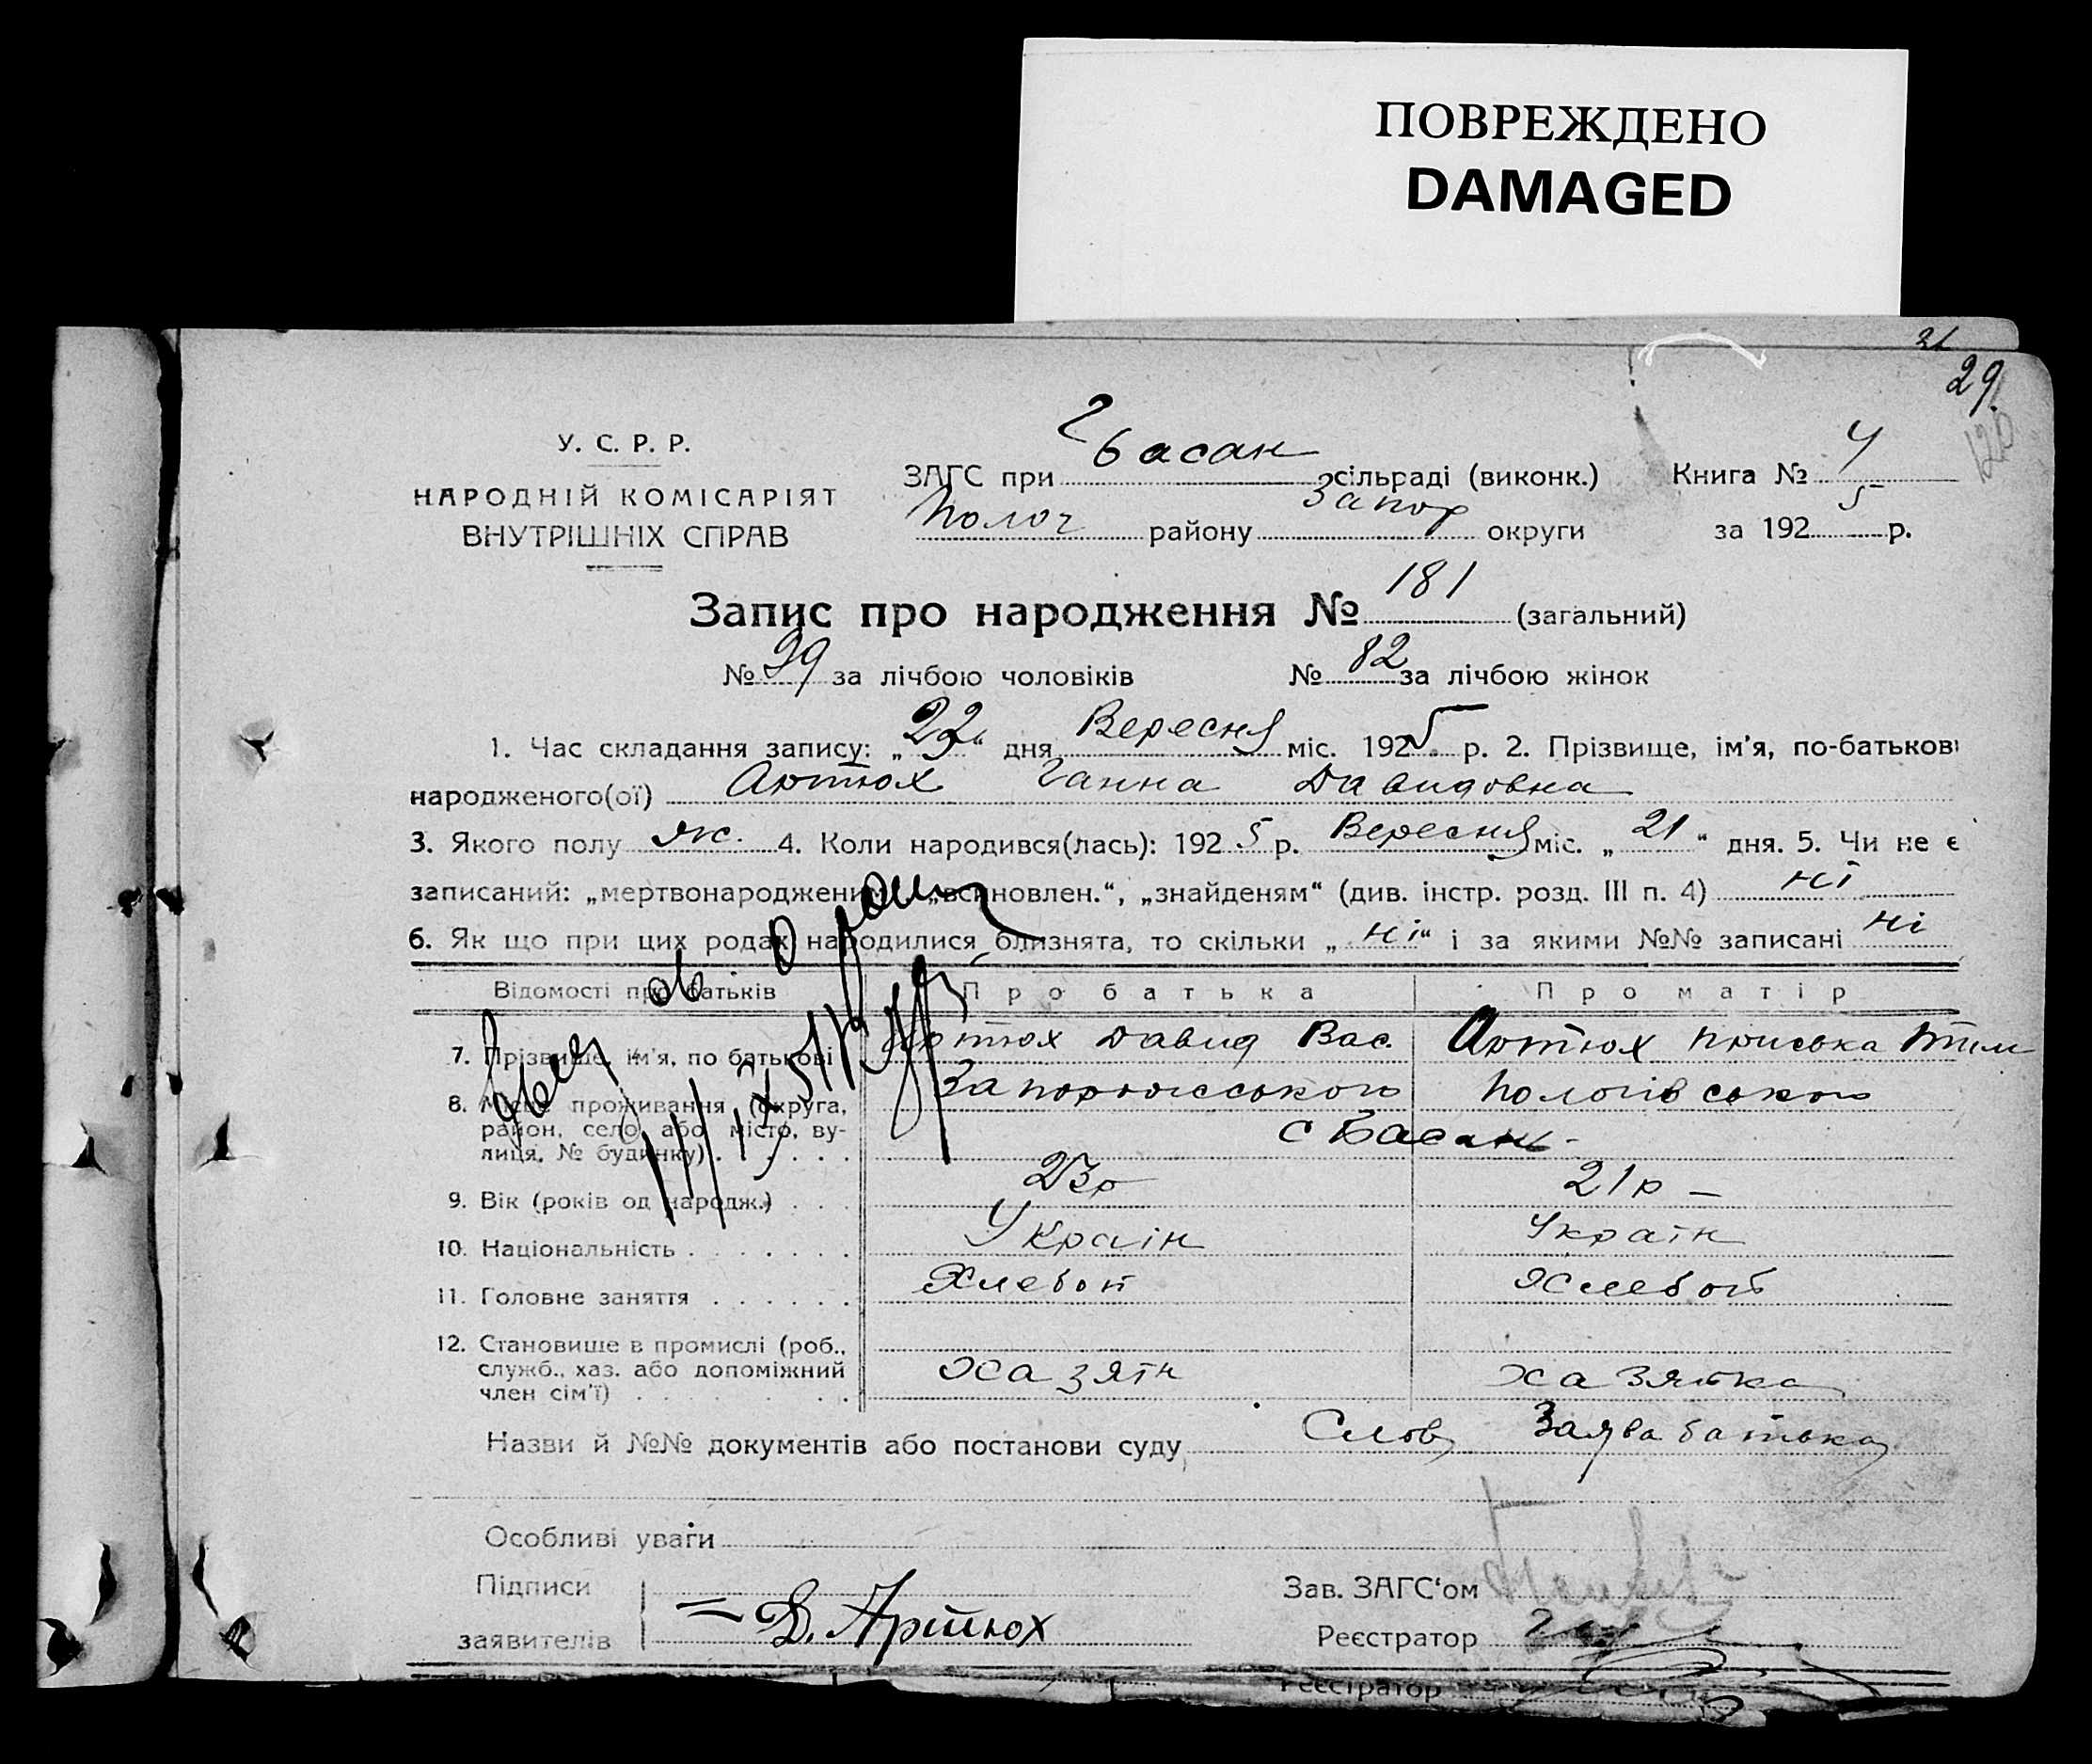 ПОВРЕЖДЕНО
DAMAGED
31
29
120
У. С. Р. Р.
НАРОДНІЙ КОМІСАРІЯТ
ВНУТРІШНІХ СПРАВ
ЗАГС при Басан сільраді (виконк.) Книга № 4
Полог району Запор округи за 1925 р.
Запис про народження № 181 (загальний)
№ 99 за лічбою чоловіків № 82 за лічбою жінок
1. Час складання запису: „22“ дня Вересня міс. 1925 р. 2. Прізвище, ім'я, по-батькові
народженого(ої) Артюх Ганна Давидовна
3. Якого полу ж. 4. Коли народився(лась): 1925 р. Вересня міс. „21“ дня. 5. Чи не є
записаний: „мертвонародженим“, „всиновлен.“, „знайденям“ (див. інстр. розд. III п. 4) ні
6. Як що при цих родах народилися близнята, то скільки „ні“ і за якими №№ записані ні
Відомості про батьків Про батька Про матір
7. Прізвище, ім'я, по батькові Артюх Давид Вас. Артюх Приська Тим
8. Місце проживання (округа, Запоріжського Пологівського
район, село або місто, ву- с Басань
лиця, № будинку)
9. Вік (років од народж.) 23р 21р
10. Національність Україн Україн
11. Головне заняття Хлебоп Хлебоп
12. Становище в промислі (роб.,
служб., хаз. або допоміжний хазяїн хазяйка
член сім'ї)
Назви й №№ документів або постанови суду Слов Заява батька
Особливі уваги
Підписи Зав. ЗАГС'ом
заявителів Д. Артюх Реєстратор
Реєстратор